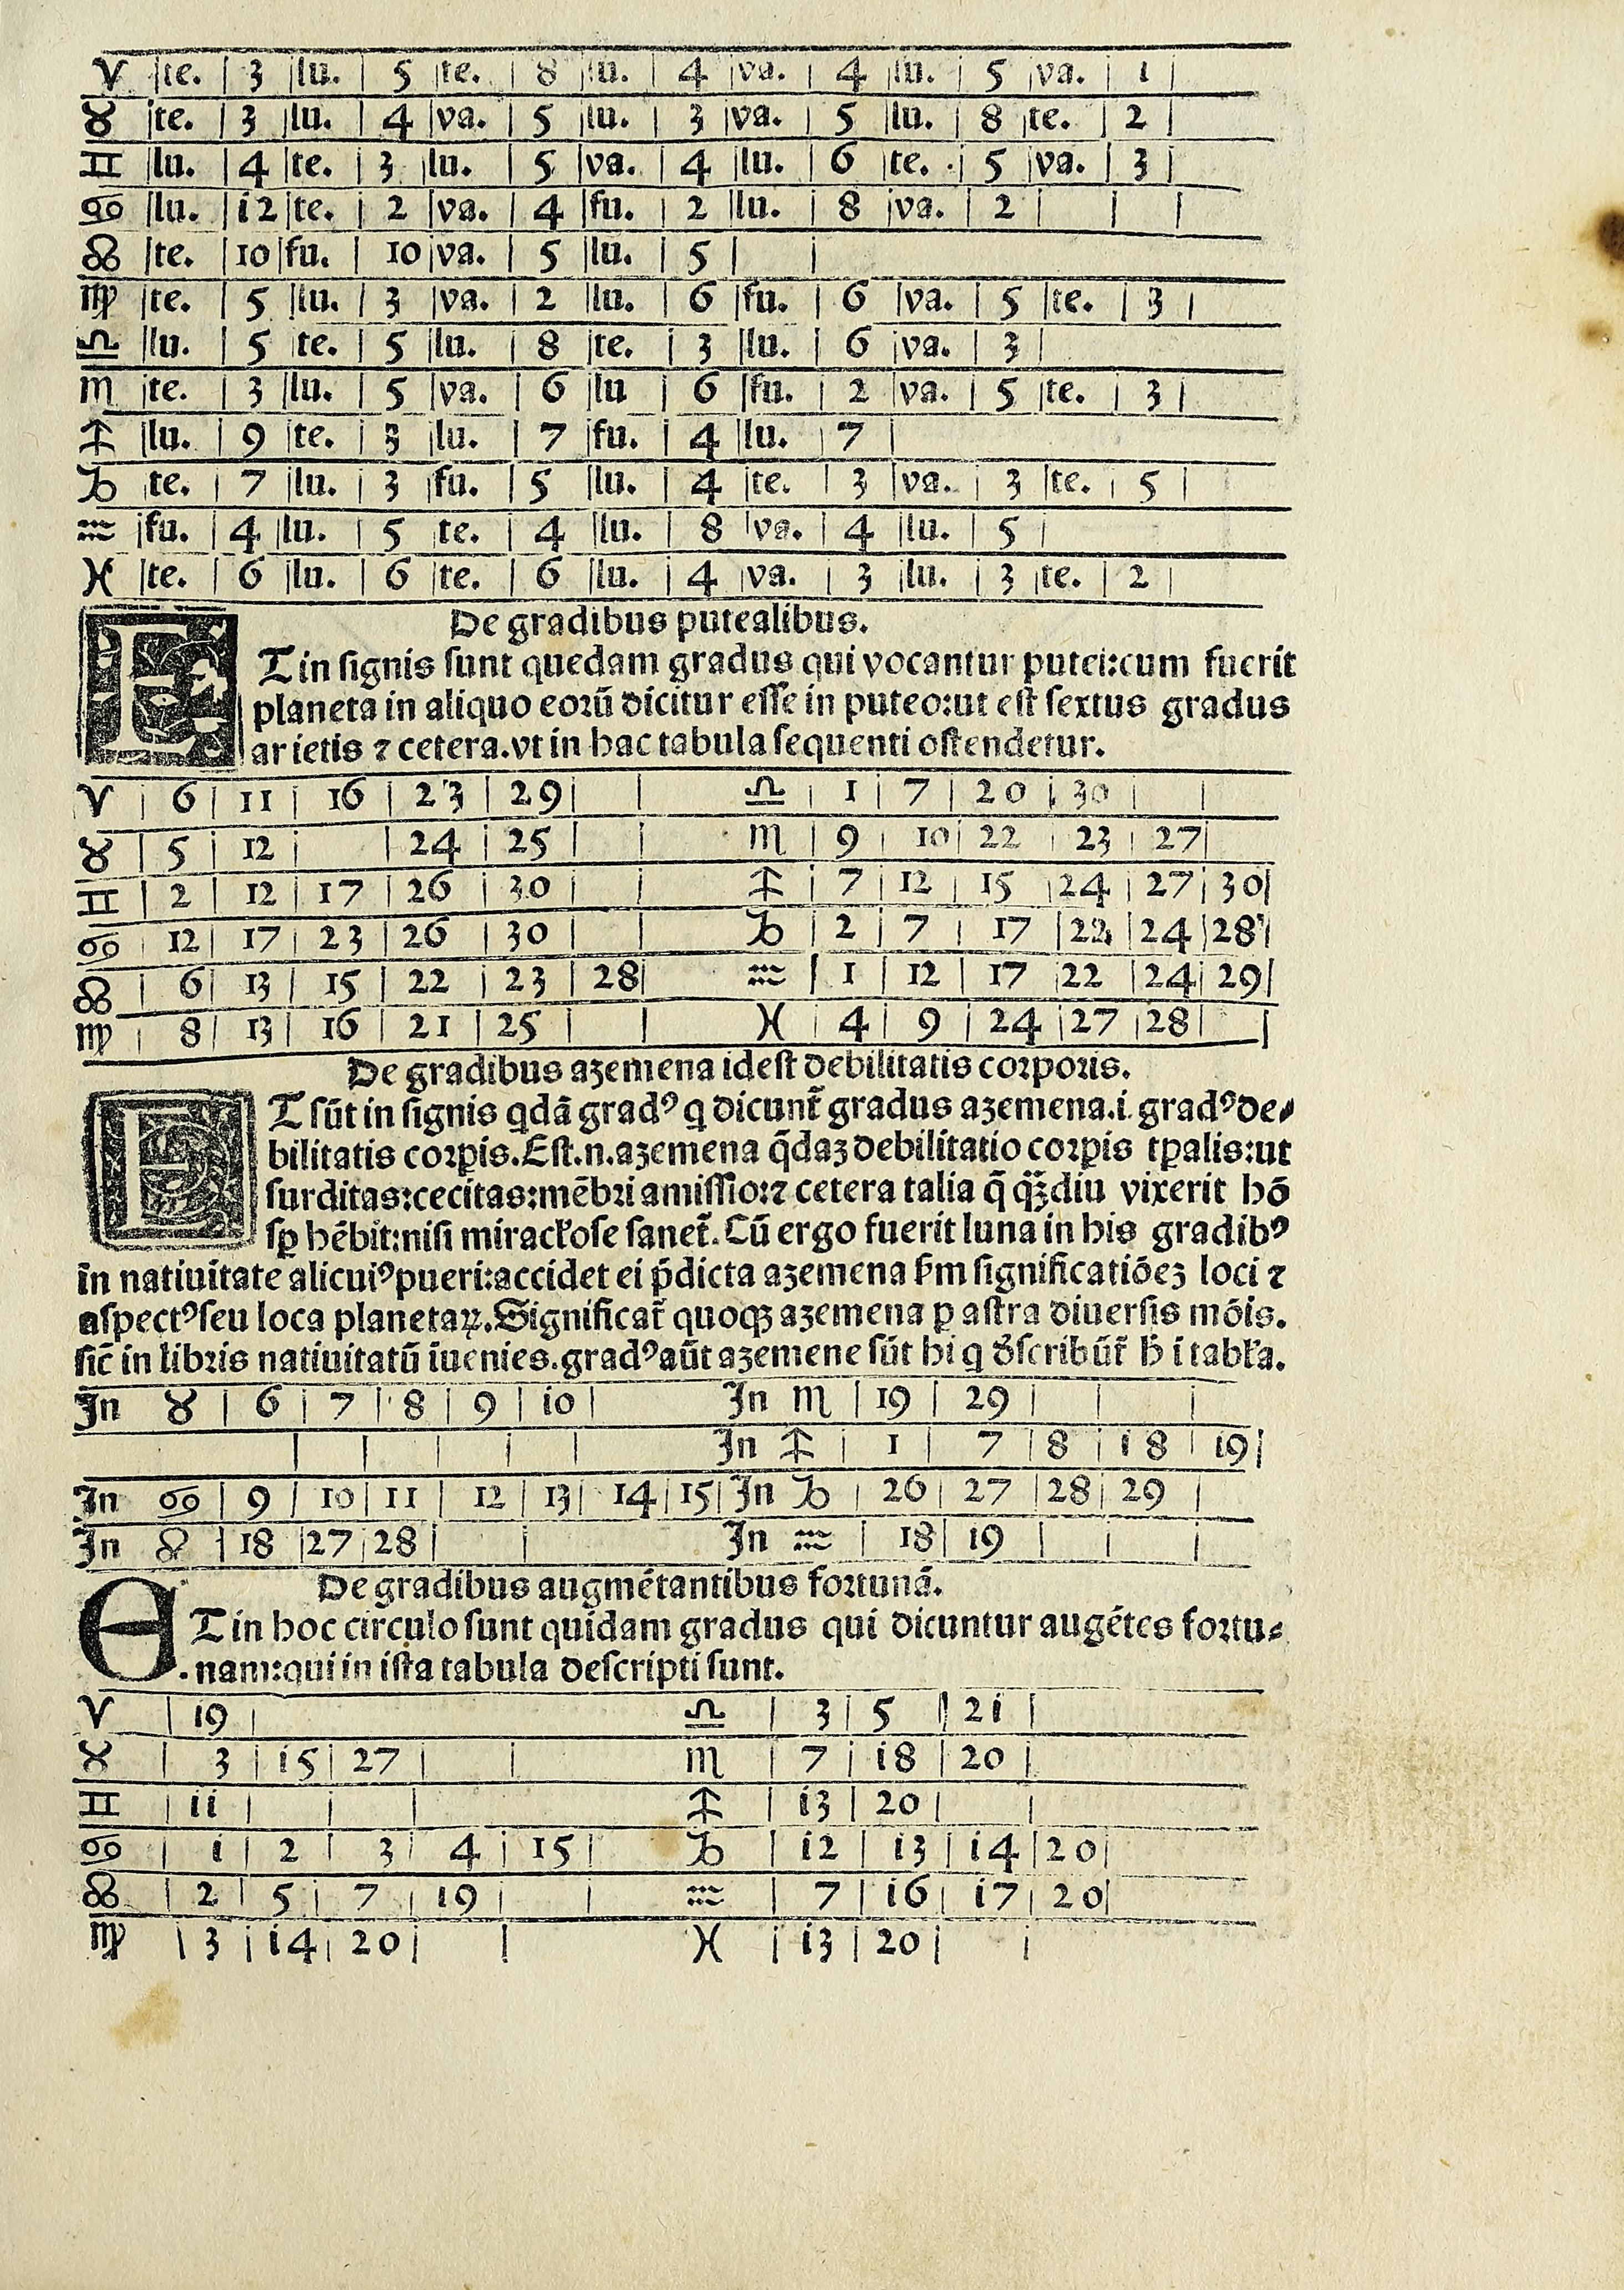 ♈ |te. | 3 |lu. | 5 |te. | 8 |lu. | 4 |va. | 4 |lu. | 5 |va. | 1 |
♉ |te. | 3 |lu. | 4 |va. | 5 |lu. | 3 |va. | 5 |lu. | 8 |te. | 2 |
♊ |lu. | 4 |te. | 3 |lu. | 5 |va. | 4 |lu. | 6 |te. | 5 |va. | 3 |
♋ |lu. | 12 |te. | 2 |va. | 4 |fu. | 2 |lu. | 8 |va. | 2 | | |
♌ |te. | 10 |fu. | 10 |va. | 5 |lu. | 5 | |
♍ |te. | 5 |lu. | 3 |va. | 2 |lu. | 6 |fu. | 6 |va. | 5 |te. | 3 |
♎ |lu. | 5 |te. | 5 |lu. | 8 |te. | 3 |lu. | 6 |va. | 3 |
♏ |te. | 3 |lu. | 5 |va. | 6 |lu | 6 |fu. | 2 |va. | 5 |te. | 3 |
♐ |lu. | 9 |te. | 3 |lu. | 7 |fu. | 4 |lu. | 7 |
♑ te. | 7 |lu. | 3 |fu. | 5 |lu. | 4 |te. | 3 |va. | 3 |te. | 5 |
♒ |fu. | 4 |lu. | 5 |te. | 4 |lu. | 8 |va. | 4 |lu. | 5 |
♓ |te. | 6 |lu. | 6 |te. | 6 |lu. | 4 |va. | 3 |lu. | 3 |te. | 2 |
De gradibus putealibus.
ET in signis sunt quedam gradus qui vocantur putei:cum fuerit
planeta in aliquo eorū dicitur esse in puteo:ut est sextus gradus
arietis ⁊ cetera.vt in hac tabula sequenti ostendetur.
♈ | 6 | 11 | 16 | 23 | 29 | | ♎ | 1 | 7 | 20 | 30 | |
♉ | 5 | 12 | | 24 | 25 | | ♏ | 9 | 10 | 22 | 23 | 27 |
♊ | 2 | 12 | 17 | 26 | 30 | | ♐ | 7 | 12 | 15 | 24 | 27 | 30 |
♋ | 12 | 17 | 23 | 26 | 30 | | ♑ | 2 | 7 | 17 | 22 | 24 | 28 |
♌ | 6 | 13 | 15 | 22 | 23 | 28 | ♒ | 1 | 12 | 17 | 22 | 24 | 29 |
♍ | 8 | 13 | 16 | 21 | 25 | | ♓ | 4 | 9 | 24 | 27 | 28 | |
De gradibus azemena idest debilitatis corporis.
ET sūt in signis qdā gradꝰ q dicunt̄ gradus azemena.i. gradꝰ de⸗
bilitatis corꝑis.Est.n.azemena q̄daz debilitatio corꝑis tꝑalis:ut
surditas:cecitas:mēbri amissio:⁊ cetera talia q̄ q̄ꝫdiu vixerit hō
sꝑ hēbit:nisi miracƚose sanet̄.Cū ergo fuerit luna in his gradibꝰ
in natiuitate alicuiꝰ pueri:accidet ei p̄dicta azemena ẜm significatiōez loci ⁊
aspectꝰ seu loca planetaꝝ.Significat̄ quoqꝫ azemena ꝑ astra diuersis mōis.
sic̄ in libris natiuitatū īuenies.gradꝰ aūt azemene sūt hi q d̓scribūt̄ h̄ i tabƚa.
In ♉ | 6 | 7 | 8 | 9 | 10 | In ♏ | 19 | 29 | | |
| | | | | In ♐ | 1 | 7 | 8 | 18 | 19 |
In ♋ | 9 | 10 | 11 | 12 | 13 | 14 | 15 | In ♑ | 26 | 27 | 28 | 29 |
In ♌ | 18 | 27 | 28 | | In ♒ | 18 | 19 | | |
De gradibus augmētantibus fortunā.
ET in hoc circulo sunt quidam gradus qui dicuntur augētes fortu⸗
nam:qui in ista tabula descripti sunt.
♈ | 19 | ♎ | 3 | 5 | 21 |
♉ | 3 | 15 | 27 | | ♏ | 7 | 18 | 20 |
♊ | 11 | | | ♐ | 13 | 20 | |
♋ | 1 | 2 | 3 | 4 | 15 | ♑ | 12 | 13 | 14 | 20 |
♌ | 2 | 5 | 7 | 19 | | ♒ | 7 | 16 | 17 | 20 |
♍ | 3 | 14 | 20 | | ♓ | 13 | 20 | |